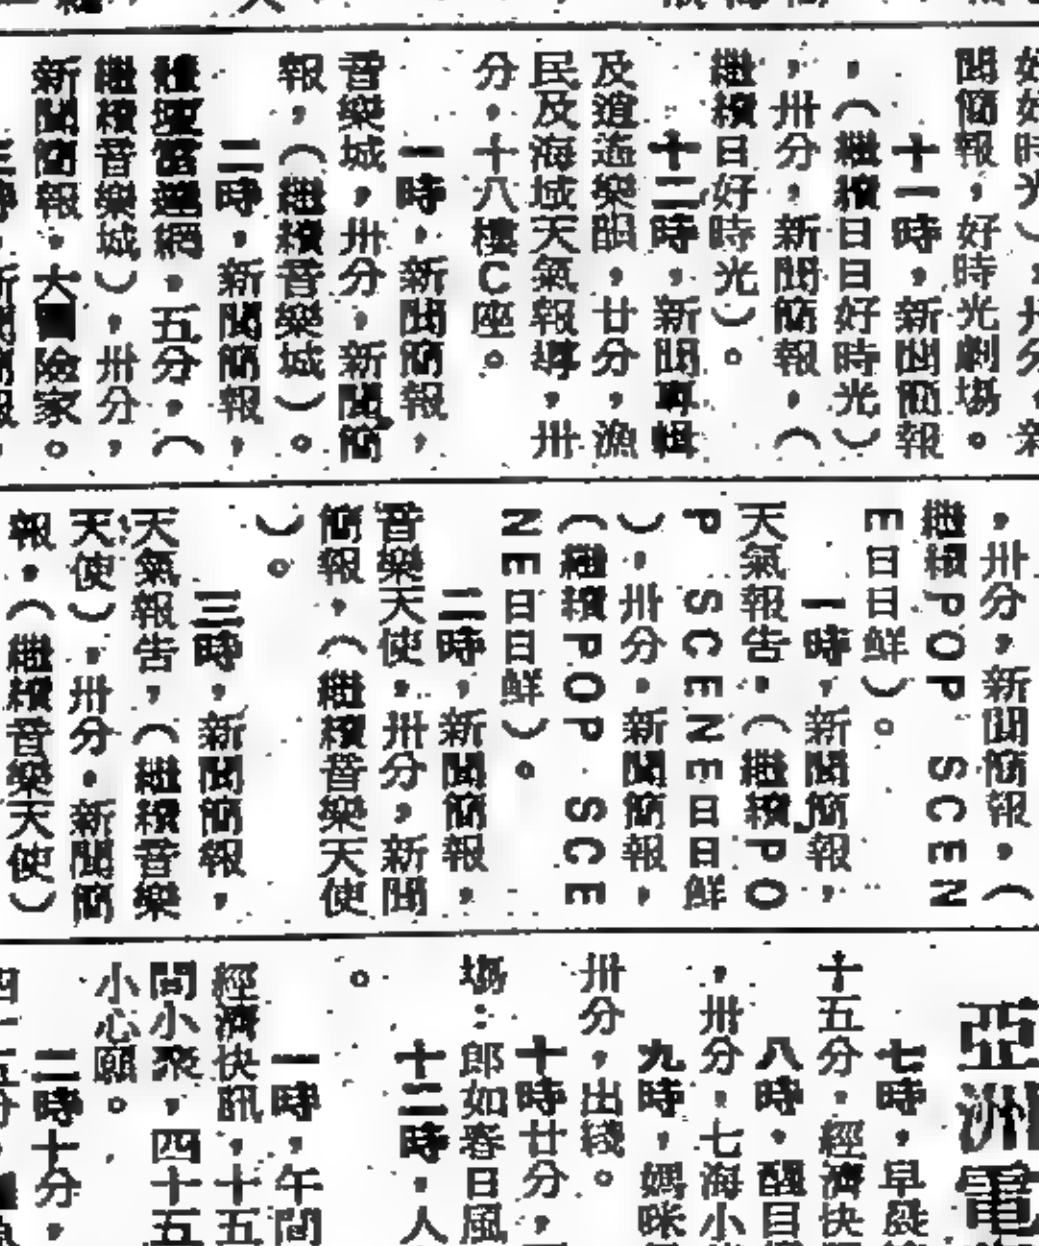 好好時光），卅分，新
聞簡報，好時光劇場。
十一時，新聞簡報
，（繼續日日好時光）
，卅分，新聞簡報，（
繼續日好時光）。
十二時，新聞專輯
及逍遙樂韻，廿分，漁
民及海域天氣報導，卅
分，十八樓C座。
一時，新聞簡報，
音樂城，卅分，新聞簡
報，（繼續音樂城）。
二時，新聞簡報，
五分，（
繼續音樂城），卅分，
新聞簡報，大冒險家。
三時，新聞簡報，
，卅分，新聞簡報，（
繼續POP SCEN
E日日鮮）。
一時，新聞簡報，
天氣報告，（繼續PO
P SCENE日日鮮
），卅分，新聞簡報，
（繼續POP SCE
NE日日鮮）。
二時，新聞簡報，
音樂天使，卅分，新聞
簡報，（繼續音樂天使
）。
三時，新聞簡報，
天氣報告，（繼續音樂
天使），卅分，新聞簡
報，（繼續音樂天使）
亞洲電
七時，早晨
十五分，經濟快
八時，醒目
，卅分，七海小
九時，媽咪
卅分，出綫。
十時廿分，
場：郎如春日風
十二時，人
。
一時，午間
經濟快訊，十五
間小聚，四十五
小心願。
二時十分，